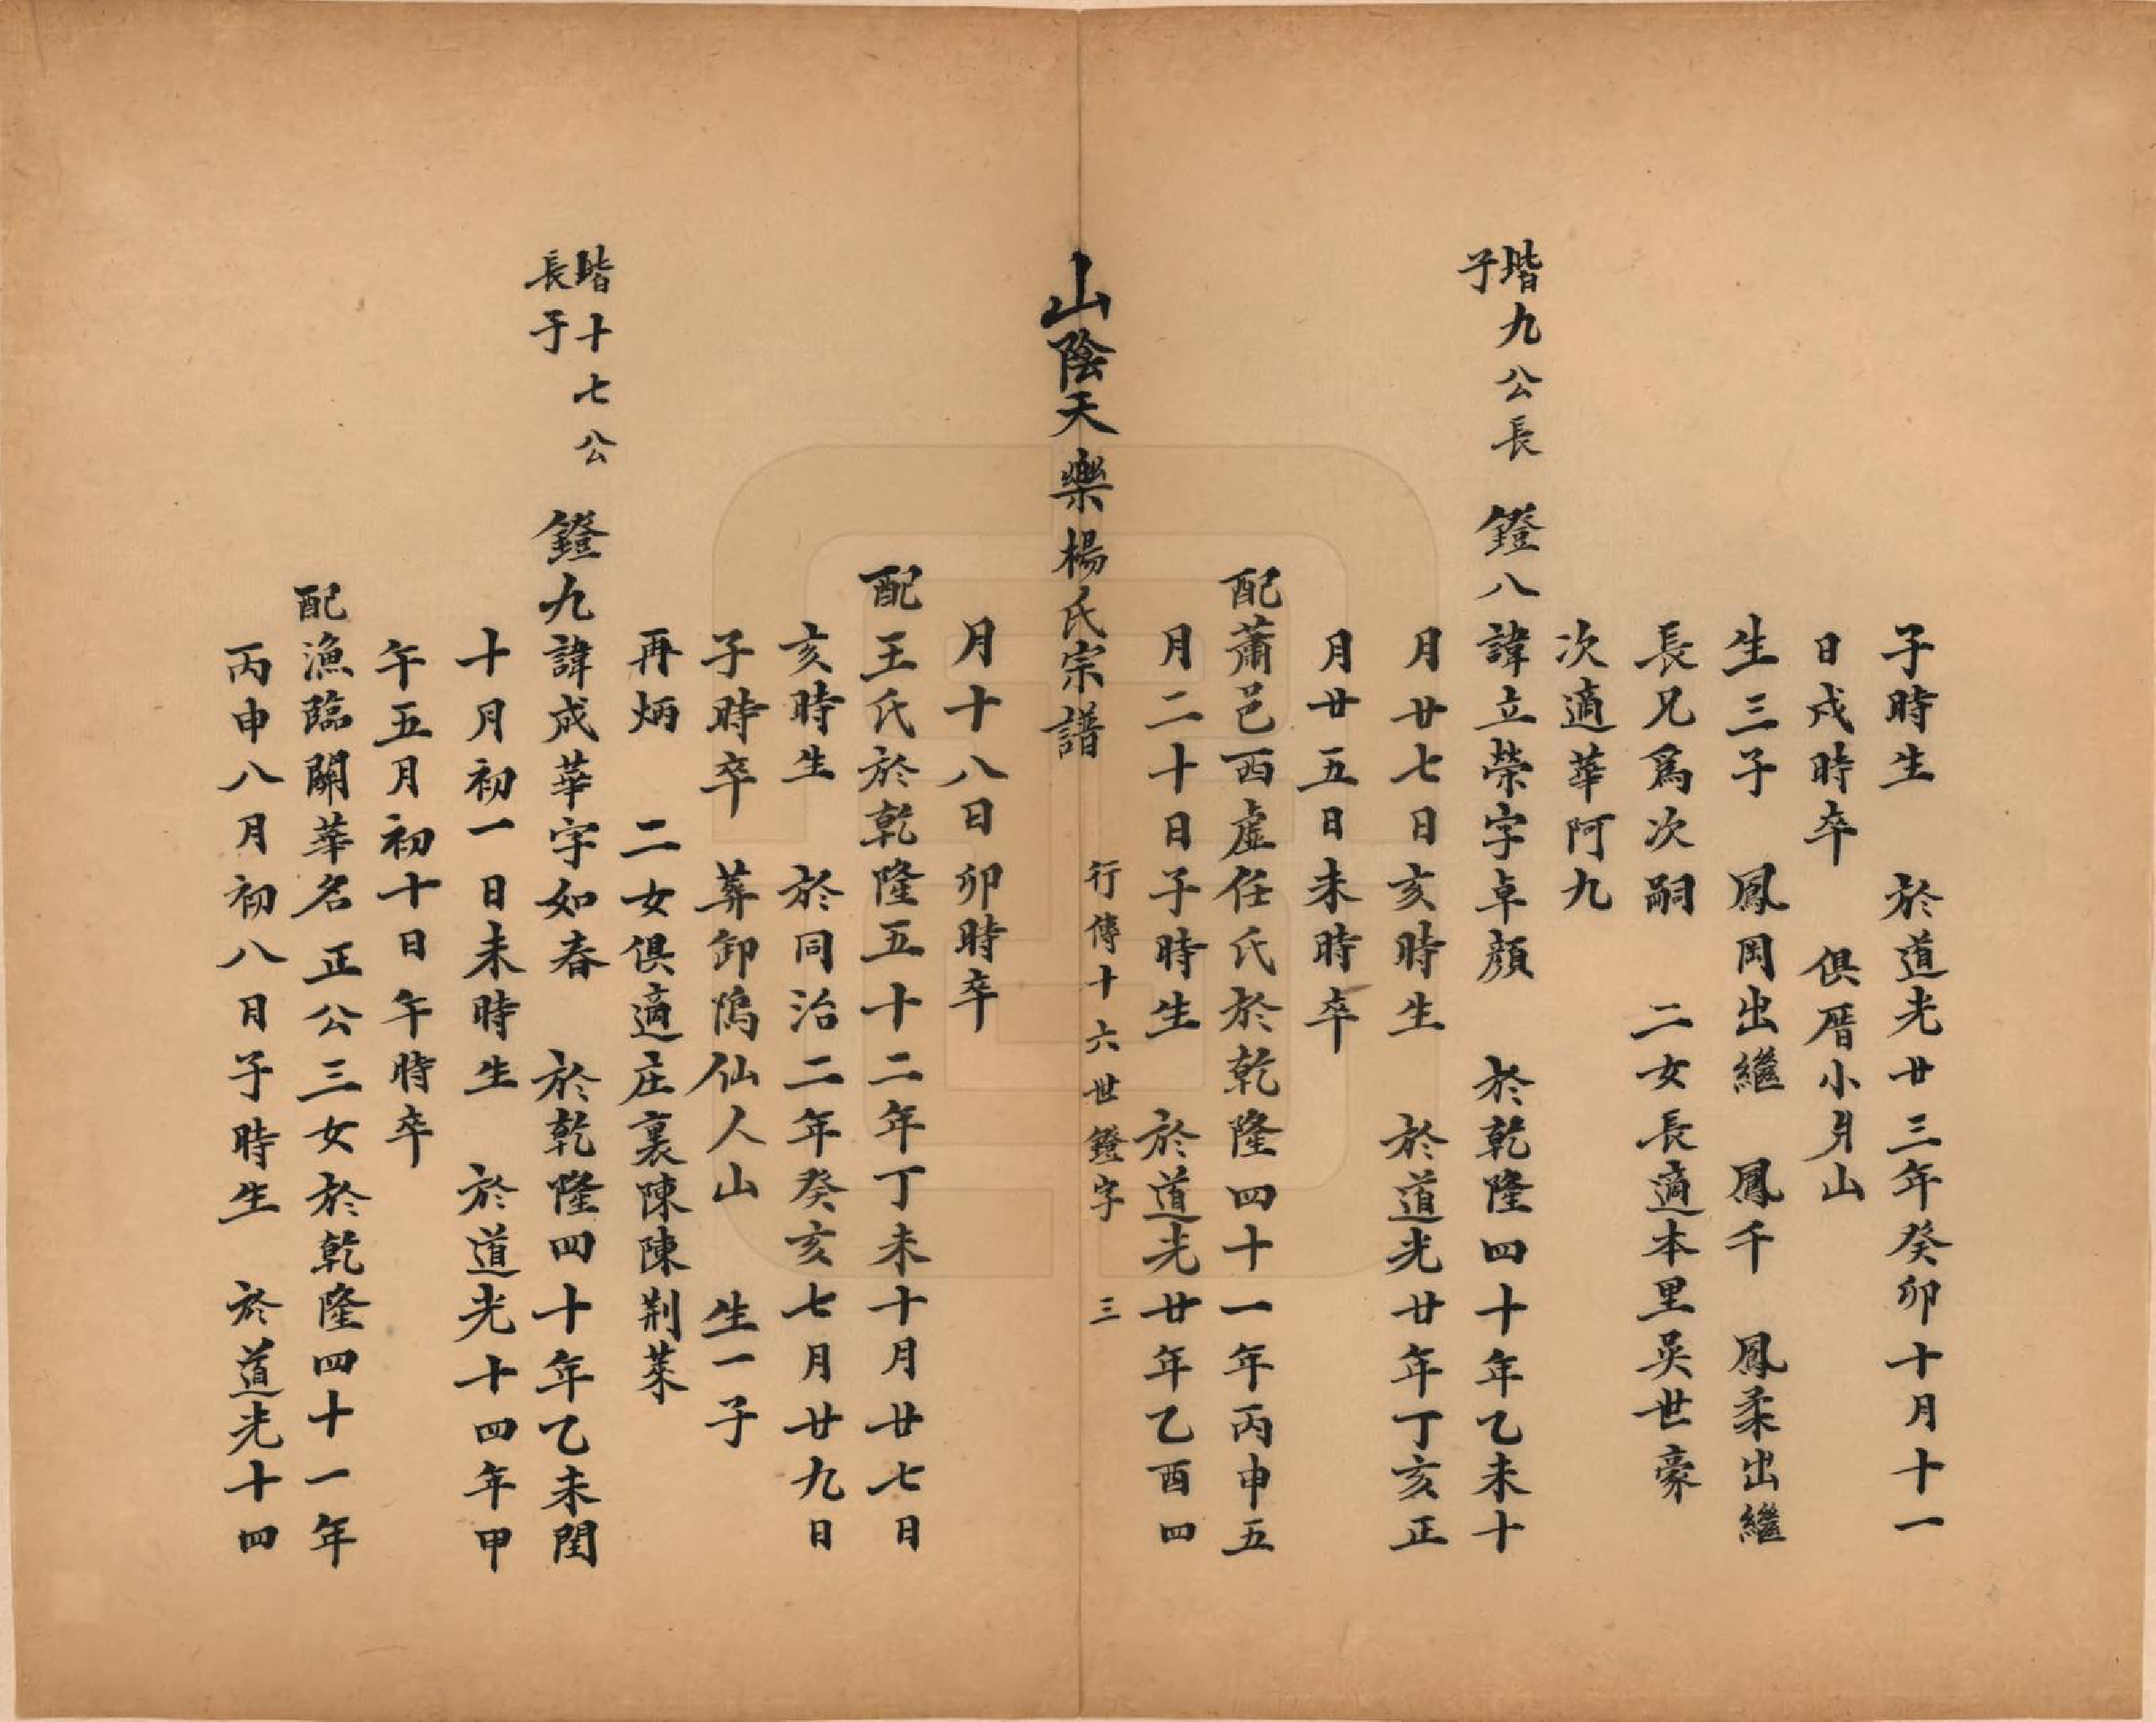 子時生　於道光廿三年癸卯十月十一
日戌時卒　俱厝小月山
生三子　鳳岡出繼　鳳千　鳳柔出繼
長兄爲次嗣　二女長適本里吳世豪
次適華阿九
堦九公長子　鐙八諱立榮字卓顔　於乾隆四十年乙未十
月廿七日亥時生　於道光廿年丁亥正
月廿五日未時卒
配蕭邑西虗任氏於乾隆四十一年丙申五
月二十日子時生　於道光廿年乙酉四
山陰天樂楊氏宗譜　行傳十六世鐙字　三
月十八日卯時卒
配王氏於乾隆五十二年丁未十月廿七日
亥時生　於同治二年癸亥七月廿九日
子時卒　葬卸隖仙人山　生一子
再炳　二女俱適庄裏陳陳荆菜
堦十七公長子　鐙九諱成華字如春　於乾隆四十年乙未閏
十月初一日未時生　於道光十四年甲
午五月初十日午時卒
配漁臨關華名正公三女於乾隆四十一年
丙申八月初八月子時生　於道光十四